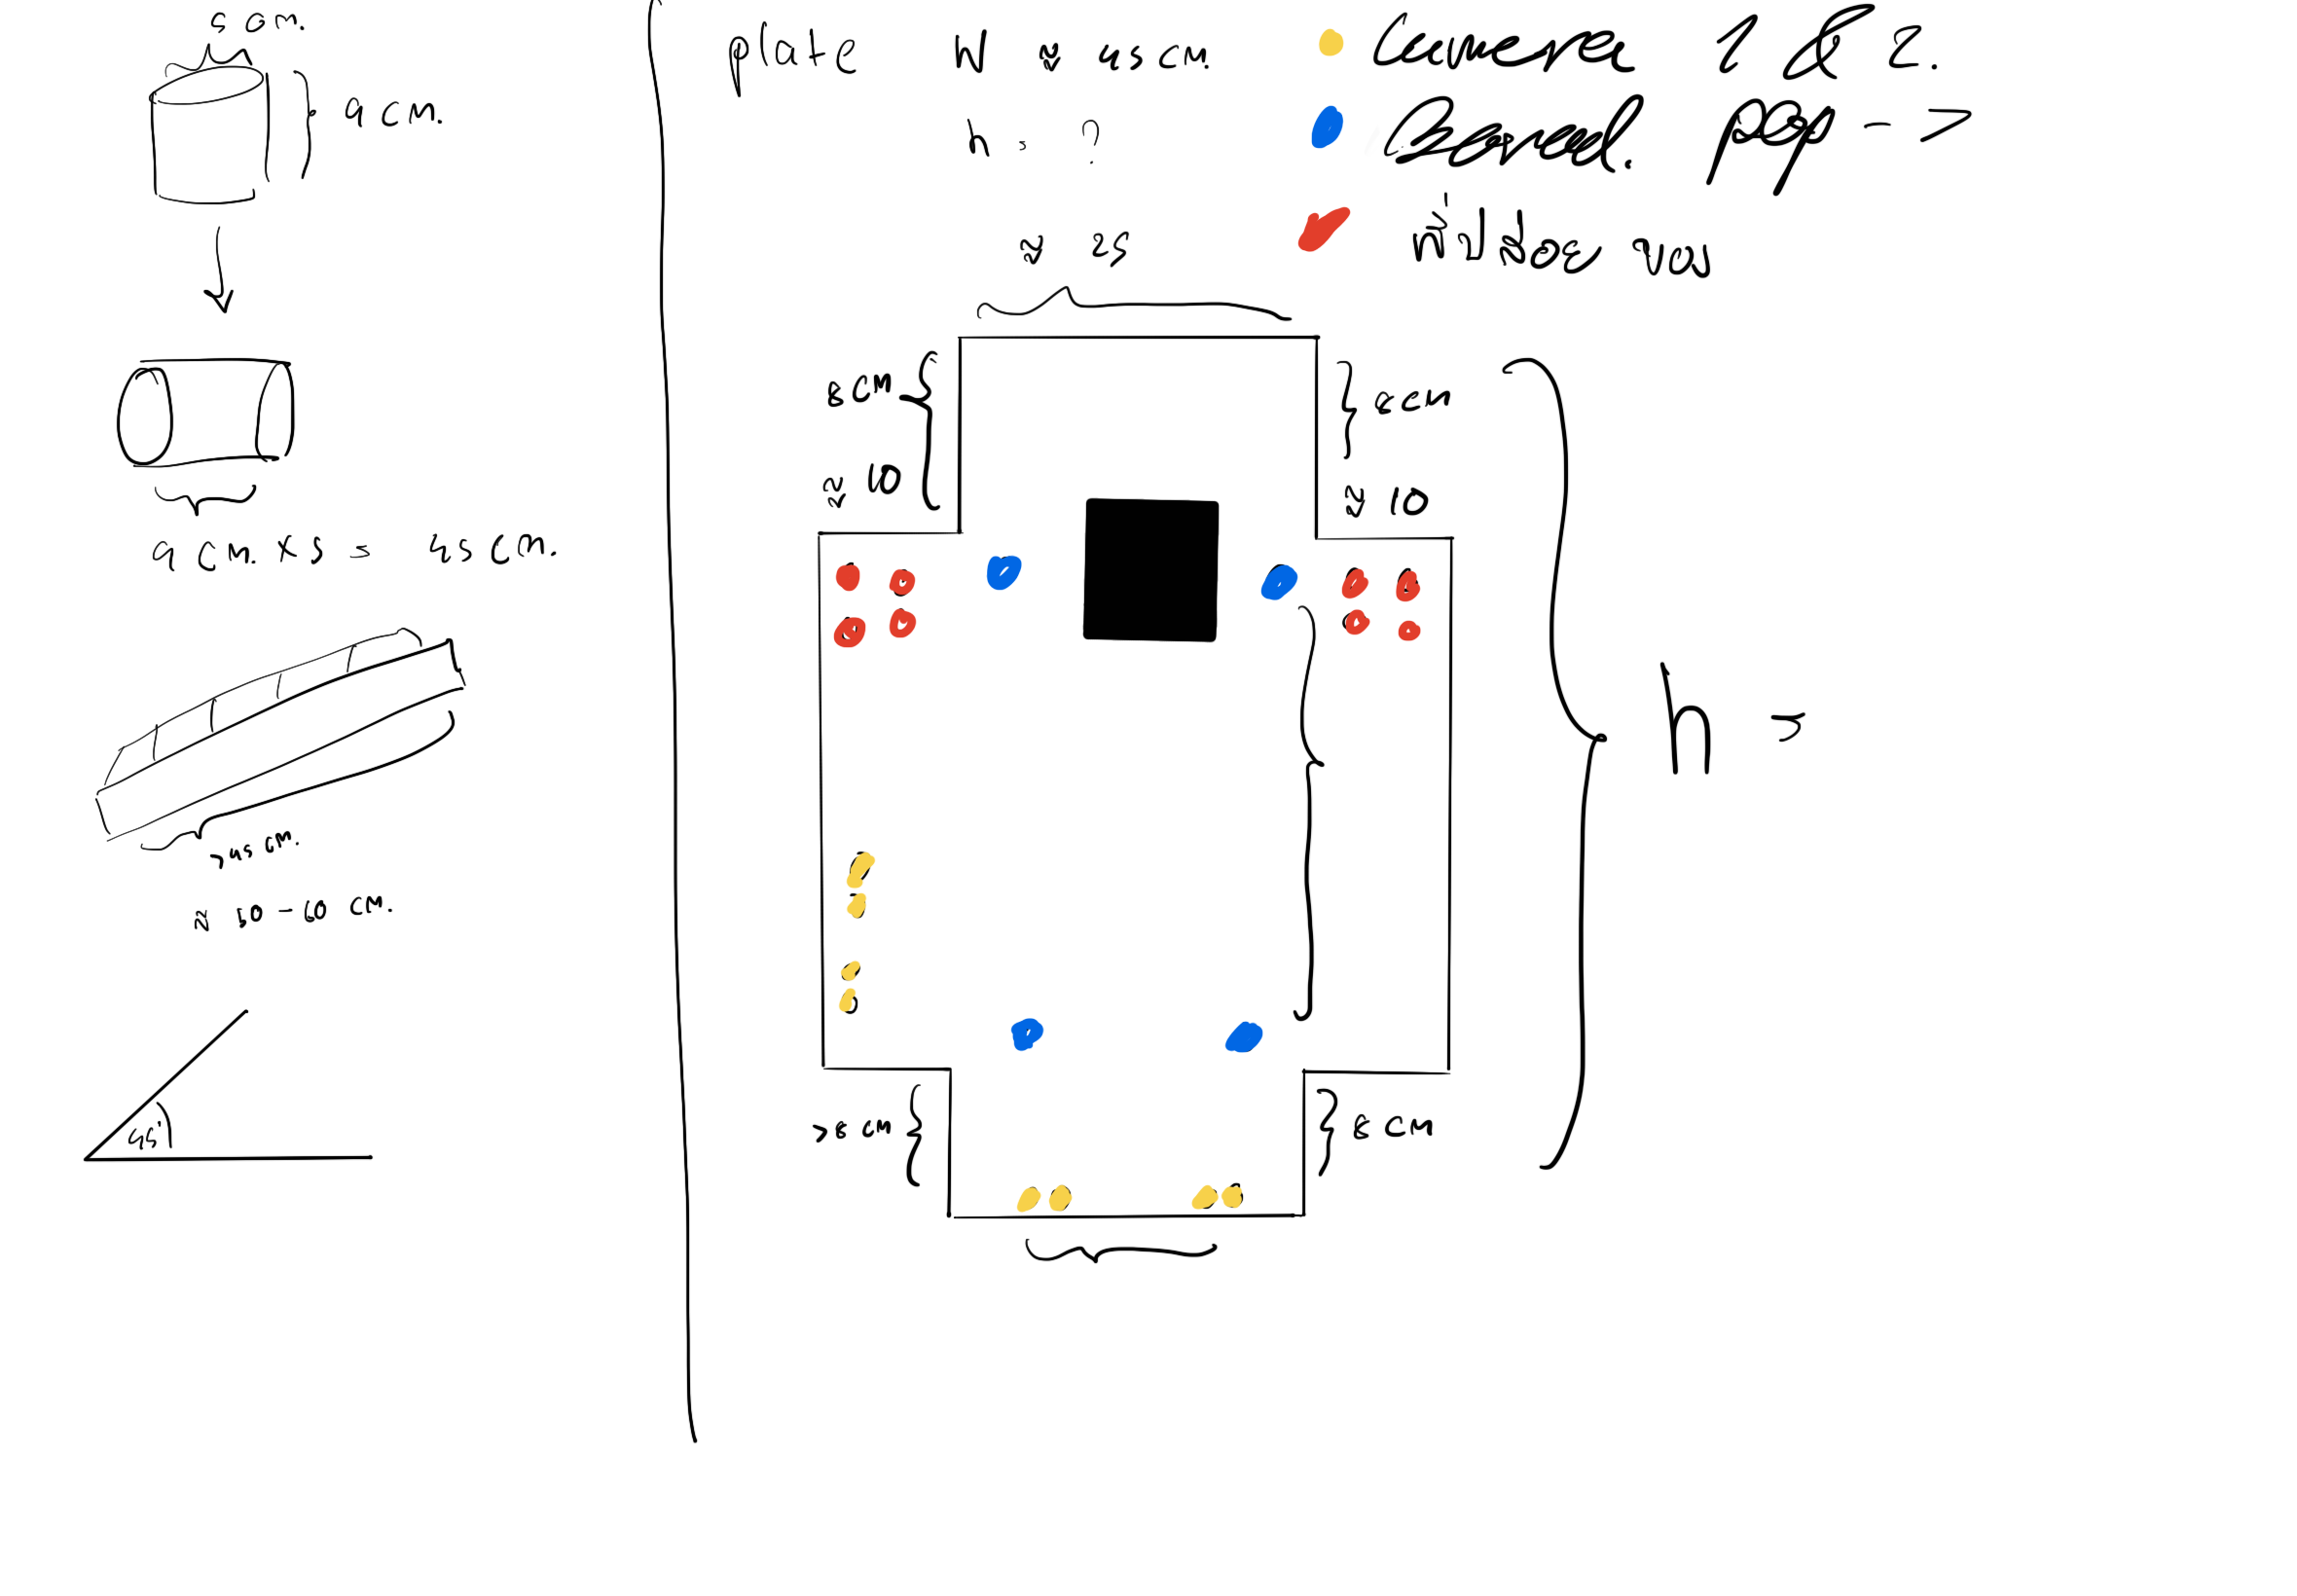 5 cm.
9 cm.
9 cm. x 5 = 45 cm.
>45 cm.
≈ 50 - 60 cm.
45°
plate W ≈ 45 cm.
h = ?
≈ 25
Camera 1 & 2.
ที่ปล่อย ของ
8 cm
≈ 10
8 cm
≈ 10
h =
>8 cm
8 cm